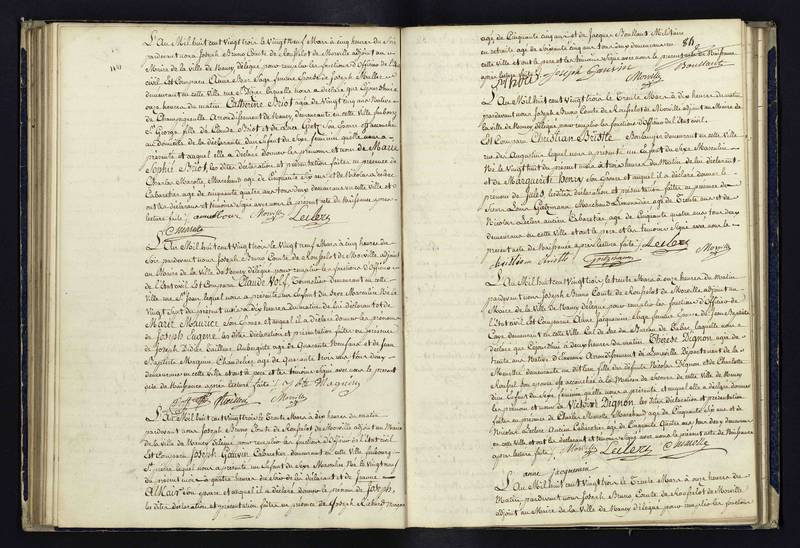 L'an Mil huit cent Vingt trois le Vingt neuf Mars à cinq heures du Soir
pardevant nous Joseph Bruno Comte de Rouffelot de Morville adjoint au
Maire de la Ville de Nancy délégué pour remplir les fonctions d'Officier de l'état
civil Est Comparu
demeurant en cette Ville laquelle nous a déclaré que
onze heures du matin Catherine Briot agée de Vingt cinq ans Native
de Champigneulle Arrondissement de Nancy, demeurante en cette Ville faubourg
St George fille de Claude Briot et de Anne Getz Son épouse est accouchée
au domicile de la déclarante d'un Enfant du Sexe féminin qu'elle nous a
présenté et auquel elle a déclaré donner les prénoms et nom de Marie
Sophie Briot, les dites déclaration et présentation faites en présence de
Charles Marotte, Marchand agé de Cinquante Six ans et de Nicolas Leclerc
Cabaretier agé de cinquante quatre ans tous deux demeurans en cette Ville et
ont les déclarant et témoins Signé avec nous le présent acte de Naissance après
lecture faite Morville Leclerc
Marotte
L'an Mil huit cent Vingt trois le Vingt neuf Mars à cinq heures du
Soir pardevant nous Joseph Bruno Comte de Rouffelot de Morville, adjoint
au Maire de la Ville de Nancy délégué pour remplir les fonctions d'Officier
de l'état civil Est Comparu Claude Volf, Tonnelier demeurant en cette
Ville rue St Jean lequel nous a présenté un Enfant du Sexe Masculin Né le
Vingt huit du présent mois à dix heures du matin de lui déclarant et de
Marie Maurice Son épouse et auquel il a déclaré donner les prénoms
de Joseph Eugène les dites déclaration et présentation faites en présence
de Joseph Didier Tailleur Aubergiste agé de Quarante Neuf ans et de Jean
Baptiste Magnien Chandelier agé de Quarante trois ans tous deux
demeurans en cette Ville et ont le père et les témoins Signé avec nous le présent
acte de Naissance après lecture faite Magnien
Morville
L'an Mil huit cent Vingt trois le Trente Mars à dix heures du matin
pardevant nous Joseph Bruno Comte de Rouffelot de Morville adjoint au Maire
de la Ville de Nancy délégué pour remplir les fonctions d'Officier de l'état civil
Est Comparu Joseph Gauvin Cabaretier demeurant en cette Ville faubourg
St Pierre lequel nous a présenté un Enfant du Sexe Masculin Né le Vingt neuf
du présent mois à quatre heures du Soir de lui déclarant et de
Son épouse et auquel il a déclaré donner le prénom de Joseph,
les dites déclaration et présentation faites en présence de Joseph
agé de Cinquante cinq ans et de Jacques Boullant Militaire
en retraite agé de Soixante cinq ans tous deux demeurans en
cette Ville et ont le père et les témoins Signé avec nous le présent acte de Naissance
après lecture faite Joseph Gauvin Morville Boullant
L'an Mil huit cent Vingt trois le Trente Mars à dix heures du matin
pardevant nous Joseph Bruno Comte de Rouffelot de Morville adjoint au Maire de
la ville de Nancy délégué pour remplir les fonctions d'Officier de l'état civil.
Est Comparu Christian Briotte Boulanger demeurant en cette Ville
rue des Augustins lequel nous a présenté un Enfant du Sexe Masculin
Né le Vingt du présent mois à trois heures du Matin de lui déclarant
et de Marguerite Henry Son épouse et auquel il a déclaré donner le
prénom de Jules, les dites déclaration et présentation faites en présence de
Marchand Limonadier agé de Trente ans et de
Nicolas Leclerc ancien Cabaretier agé de Cinquante quatre ans tous deux
demeurans en cette Ville et ont le père et les témoins Signé avec nous le
présent acte de Naissance après lecture faite Leclerc
Morville
L'an Mil huit cent Vingt trois le trente Mars à onze heures du matin
pardevant nous Joseph Bruno Comte de Rouffelot de Morville adjoint au
Maire de la Ville de Nancy délégué pour remplir les fonctions d'Officier de
l'état civil Est Comparu Anne Jacquemin Sage femme Epouse de Jean Baptiste
demeurant en cette Ville laquelle nous a
déclaré que à deux heures du matin Thérèse Dignon agée de
trente ans Native de Arrondissement de Lunéville Département de la
Meurthe demeurante en dit lieu fille des défunts Nicolas Dignon et de Charlotte
est accouchée à la Maison de Secours de cette Ville de Nancy
d'un Enfant du Sexe féminin qu'elle nous a présenté et auquel elle a déclaré donner
les prénom et nom de Victoire Dignon, les dites déclaration et présentation
faites en présence de Charles Marotte, Marchand agé de Cinquante Six ans et de
Nicolas Leclerc Ancien Cabaretier agé de Cinquante Quatre ans tous deux demeurans
en cette Ville, et ont les déclarant et témoins Signé avec nous le présent acte de Naissance
après lecture faite Morville Leclerc Marotte
anne jacquemin
L'an Mil huit cent Vingt trois le Trente Mars à onze heures du
Matin, pardevant nous Joseph Bruno Comte de Rouffelot de Morville,
adjoint au Maire de la Ville de Nancy délégué pour remplir les fonctions